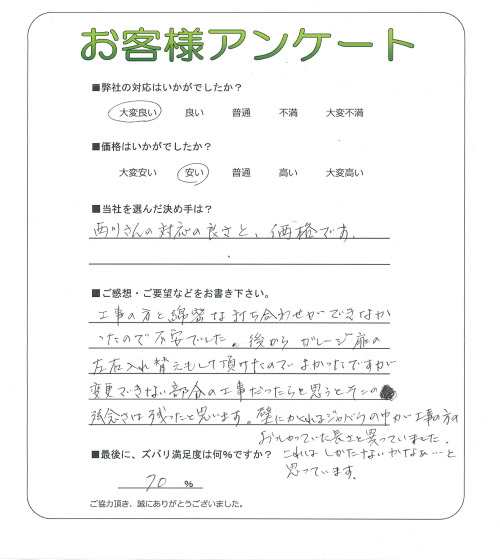 お客様アンケート
■弊社の対応はいかがでしたか?
大変良い 良い 普通 不満 大変不満
■価格はいかがでしたか?
大変安い 安い 普通 高い 大変高い
■当社を選んだ決め手は?
西川さんの対応の良さと、価格です。
■ご感想・ご要望などをお書き下さい。
工事の方と綿密な打ち合わせができなか
ったので不安でした。後からガレージ扉の
左右入れ替えもして頂けたのでよかったですが
変更できない部分の工事だったらと思うとその
残念さは残ったと思います。壁にかくれるジャバラの巾が工事の方の
おしゃっていた長さと異っていました。
これはしかたないかなぁ…と
思っています。
■最後に、ズバリ満足度は何%ですか?
70 %
ご協力頂き、誠にありがとうございました。